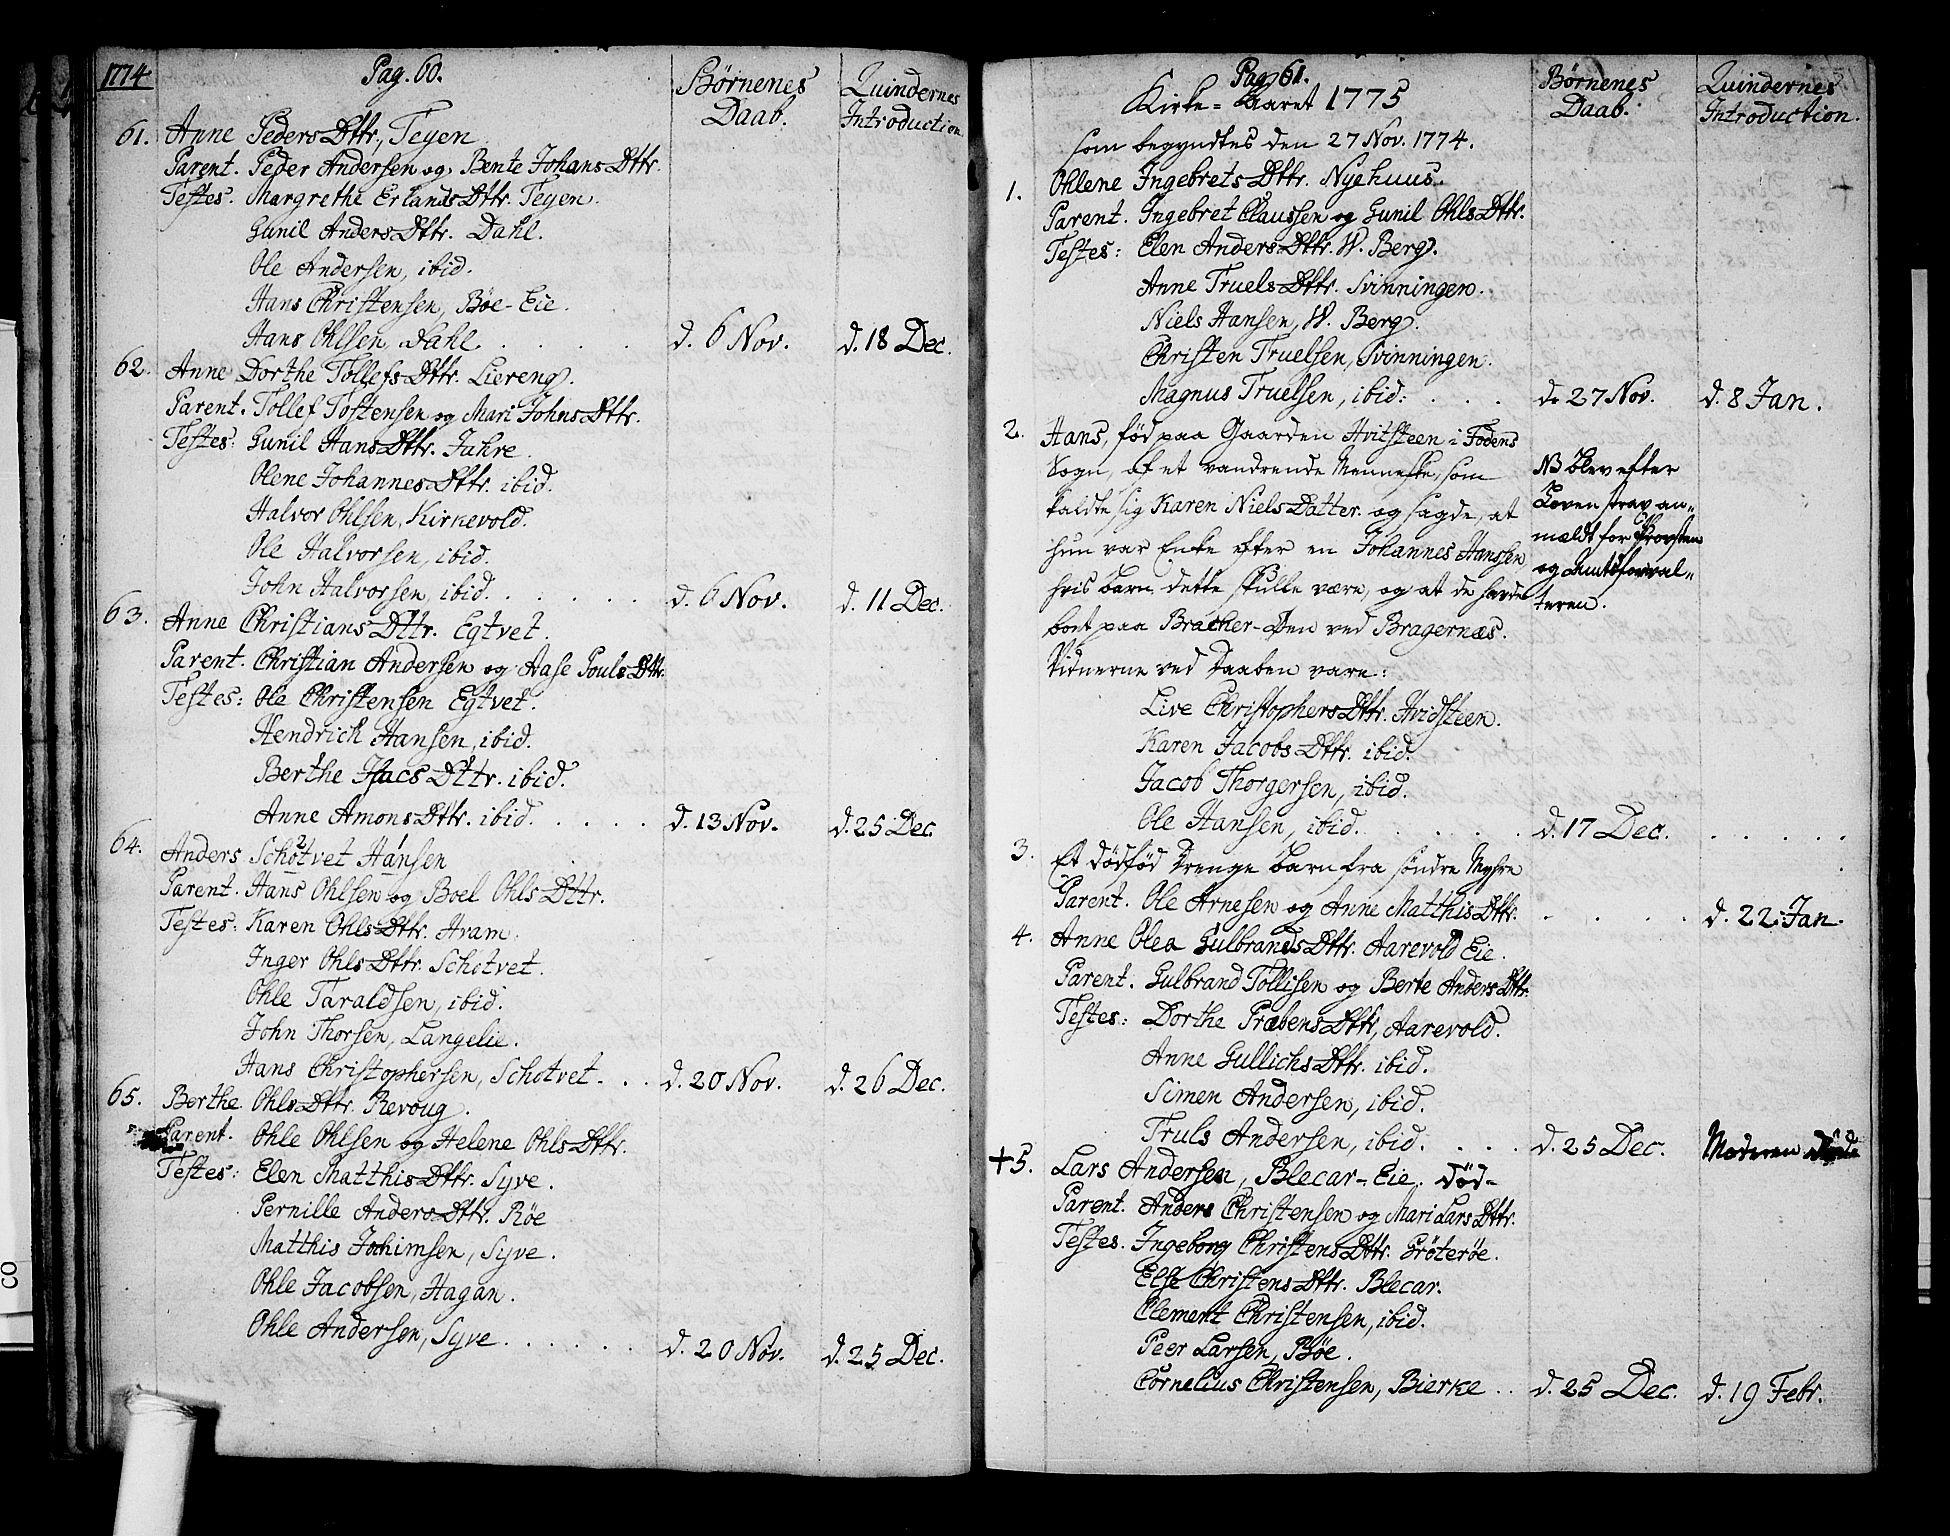 1774
Pag. 60.
Börnenes Daab.
Quindernes Introduction.
61. Anne PedersDttr, Teyen
Parent. Peder Andersen og Bente JohansDttr.
Testes. Margrethe ErlandsDttr. Teyen.
Gunil AndersDttr. Dahl.
Ole Andersen, ibid.
Hans Christensen, Böe-Eie.
Hans Ohlsen, Dahl. . . . . . d. 6 Nov. d. 18 Dec.
62. Anne Dorthe TollefsDttr. Liereng.
Parent. Tollef Tostensen og Mari JohnsDttr.
Testes: Gunil HansDttr. Jahre.
Olene JohannesDttr. ibid.
Halvor Ohlsen, Kirkevold.
Ole Halvorsen, ibid.
John Halvorsen, ibid. . . . . . d. 6 Nov. d. 11 Dec.
63. Anne ChristiansDttr. Egtvet.
Parent. Christian Andersen og Aase PoulsDttr.
Testes: Ole Christensen Egtvet.
Hendrich Hansen, ibid.
Berthe IsacsDttr. ibid.
Anne AmonsDttr. ibid. . . . . d. 13 Nov. d. 25 Dec.
64. Anders Schotvet Hansen
Parent. Hans Ohlsen og Boel OhlsDttr.
Testes: Karen OhlsDttr. Aram.
Inger OhlsDttr. Schotvet.
Ohle Taraldsen, ibid.
John Thorsen, Langelie.
Hans Christophersen, Schotvet. . . d. 20 Nov. d. 26 Dec.
65. Berthe OhlsDttr. Revoug.
Parent. Ohle Ohlsen og Helene OhlsDttr.
Testes: Elen MatthisDttr. Syve.
Pernille AndersDttr. Röe
Matthis Jochimsen, Syve.
Ohle Jacobsen, Hagan.
Ohle Andersen, Syve . . . . . d. 20 Nov. d. 25 Dec.
Pag. 61.
Kirke-Aaret 1775
som begyndtes den 27 Nov. 1774.
Börnenes Daab.
Quindernes Introduction.
1. Ohlene IngebretsDttr. Nyehuus.
Parent. Ingebret Claussen og Gunil OhlsDttr.
Testes: Elen AndersDttr. W. Berg.
Anne TruelsDttr. Svinningen.
Niels Hansen, W. Berg.
Christen Truelsen, Svinningen.
Magnus Truelsen, ibid: . . . d. 27 Nov. d. 8 Jan.
2. Hans, fød paa Gaarden Hvitsteen i Fodens
Sogn, af et vandrende Menneske, som
kaldte sig Karen NielsDatter. og sagde, at
hun var Enke efter en Johannes Hanssen,
hvis barn dette skulle være, og at de havde
boet paa Bracher-Øen ved Bragernæs.
Vidnerne ved Daaben vare:
NB blev efter
Loven strax an-
mældt for Provsten
og Amtsforval-
teren.
Live ChristophersDttr. Hvidsteen.
Karen JacobsDttr. ibid.
Jacob Thorgersen, ibid.
Ole Hansen, ibid. . . . . . d. 17 Dec. . . . . .
3. Et dödfød Drenge barn fra söndre Myhre
Parent. Ole Arnesen og Anne MatthisDttr. . . . . d. 22 Jan.
4. Anne Olea GulbrandsDttr. Aarevold Eie.
Parent. Gulbrand Tollisen og Berte AndersDttr.
Testes: Dorthe PræbensDttr, Aarevold.
Anne GullichsDttr. ibid.
Simen Andersen, ibid.
Truls Andersen, ibid. . . . d. 25 Dec. Moderen döde
+5. Lars Andersen, Blecar-Eie. död-
Parent. Anders Christensen og Mari LarsDttr.
Testes. Ingeborg ChristensDttr. Gröteröe.
Else ChristensDttr. Blecar.
Clement Christensen, ibid.
Peer Larsen, Böe.
Cornelius Christensen, Bierke . . d. 25 Dec. d. 19 Febr.